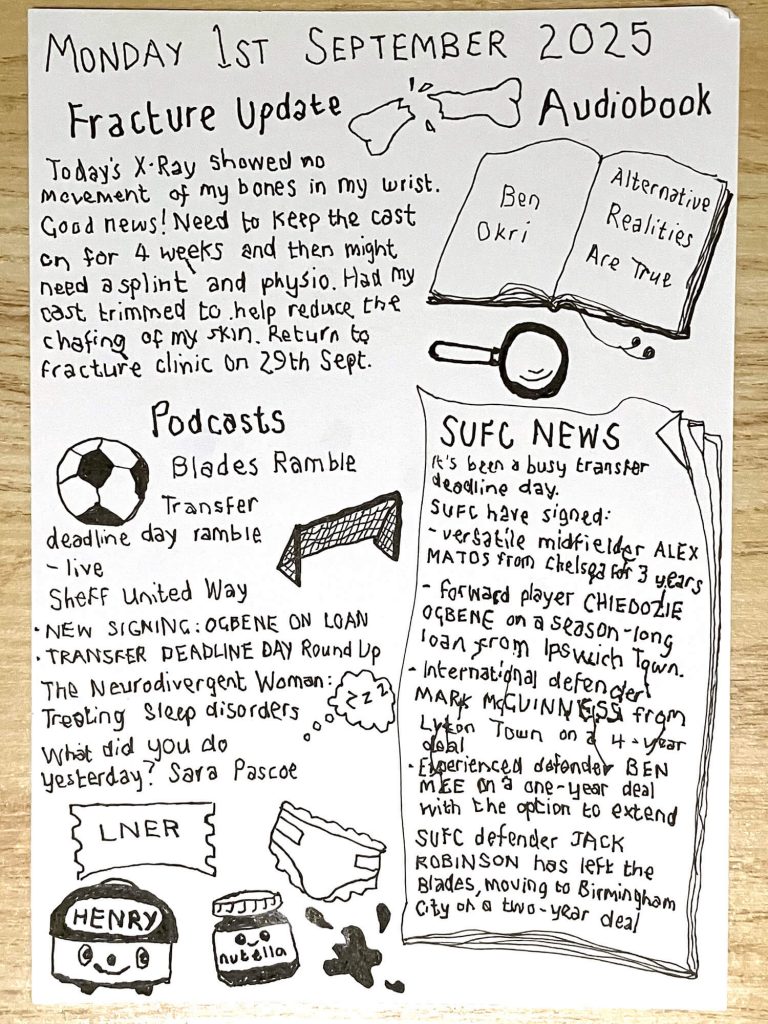 MONDAY 1ST SEPTEMBER 2025
Fracture Update
Today's X-Ray showed no
movement of my bones in my wrist.
Good news! Need to keep the cast
on for 4 weeks and then might
need a splint and physio. Had my
cast trimmed to help reduce the
chafing of my skin. Return to
fracture clinic on 29th Sept.
Audiobook
Ben
Okri
Alternative
Realities
Are True
Podcasts
Blades Ramble
Transfer
deadline day ramble
- live
Sheff United Way
• NEW SIGNING: OGBENE ON LOAN
• TRANSFER DEADLINE DAY Round Up
The Neurodivergent Woman:
Treating Sleep disorders
zzz
What did you do
yesterday? Sara Pascoe
LNER
HENRY
nutella
SUFC NEWS
It's been a busy transfer
deadline day.
SUFC have signed:
- versatile midfielder ALEX
MATOS from Chelsea for 3 years
- forward player CHIEDOZIE
OGBENE on a season-long
loan from Ipswich Town.
- International defender
MARK McGUINNESS from
Luton Town on a 4-year
deal
• Experienced defender BEN
MEE on a one-year deal
with the option to extend
SUFC defender JACK
ROBINSON has left the
Blades, moving to Birmingham
City on a two-year deal